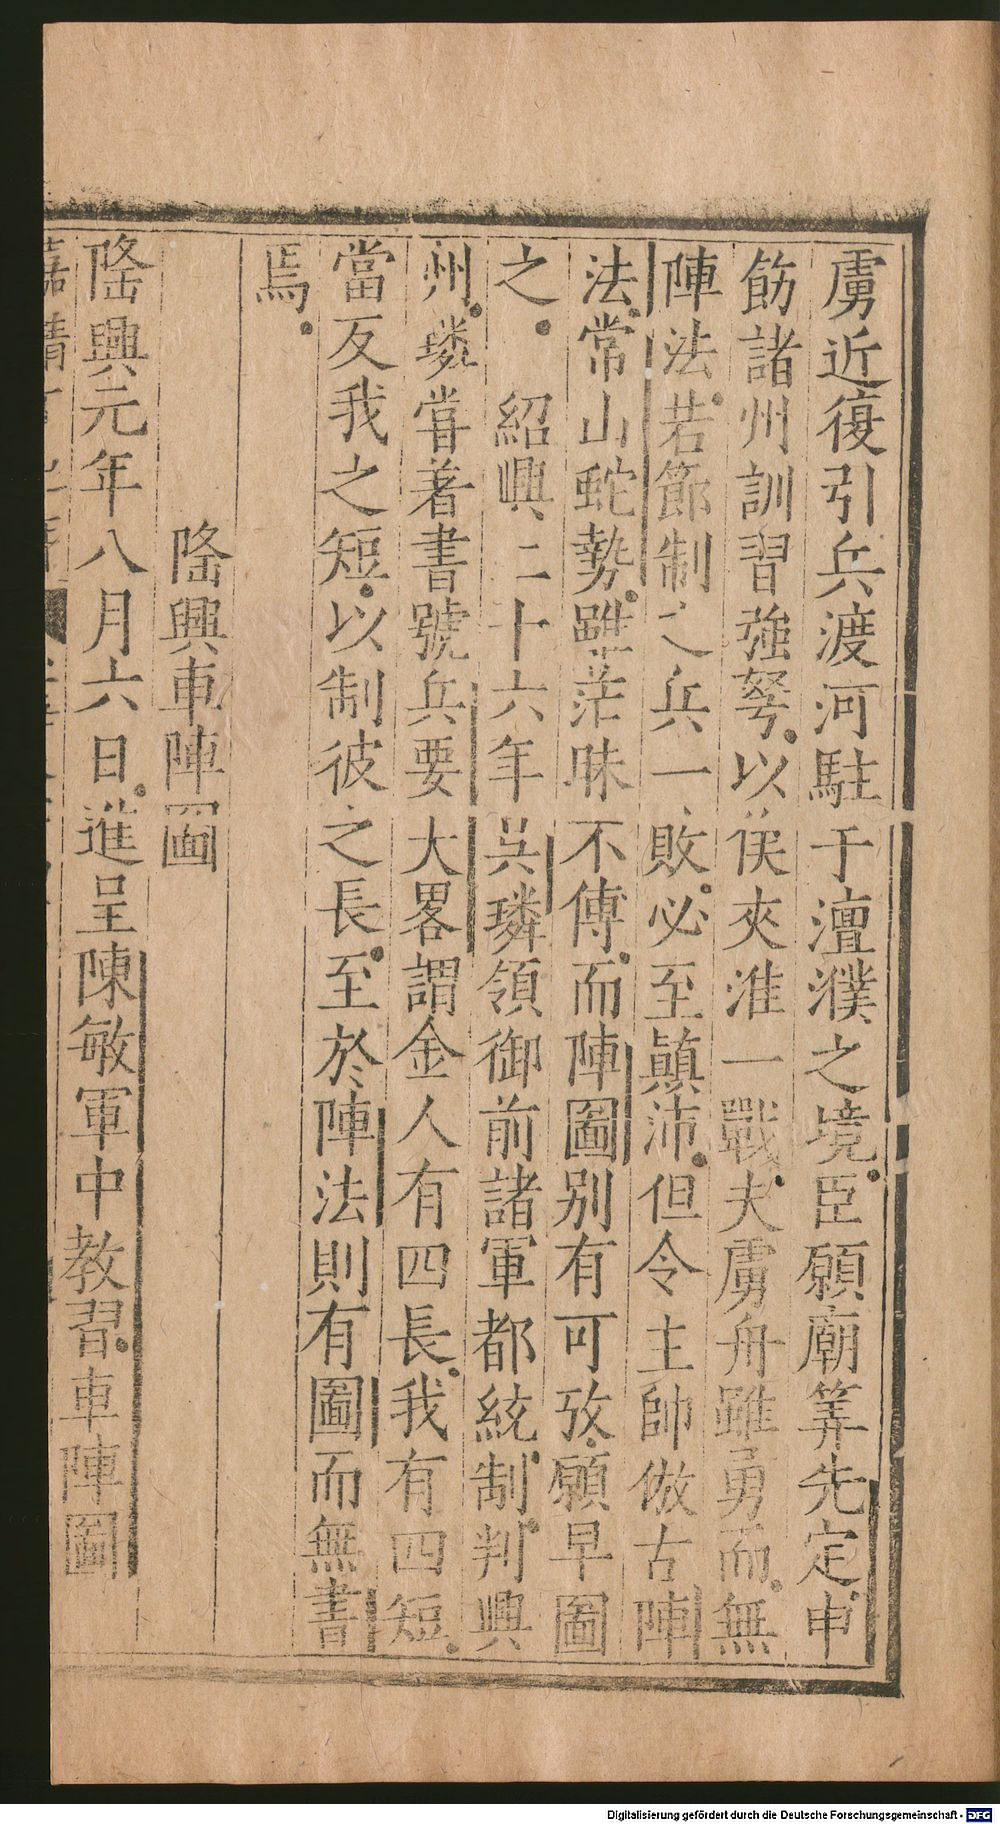 虜近復引兵渡河駐于澶濮之境臣願廟筭先定申
飭諸州訓習強弩以俟夾淮一戰夫虜舟雖勇而無
陣法若節制之兵一敗必至顚沛但令主帥倣古陣
法常山蛇勢雖茫昧不傳而陣圖别有可攷願早圖
之 紹興二十六年吳璘領御前諸軍都統制判興
州璘甞著書號兵要大畧謂金人有四長我有四短
當反我之短以制彼之長至於陣法則有圖而無書
焉
隆興車陣圖
隆興元年八月六日進呈陳敏軍中教習車陣圖
Digitalisierung gefördert durch die Deutsche Forschungsgemeinschaft - DFG